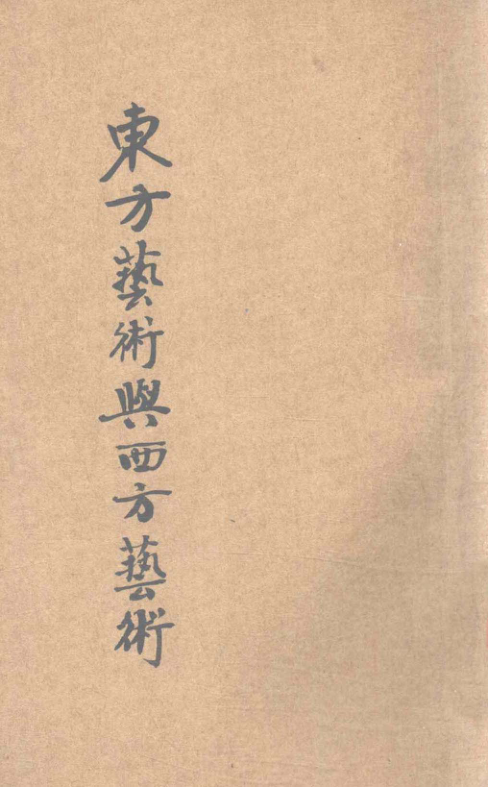 東方藝術與西方藝術